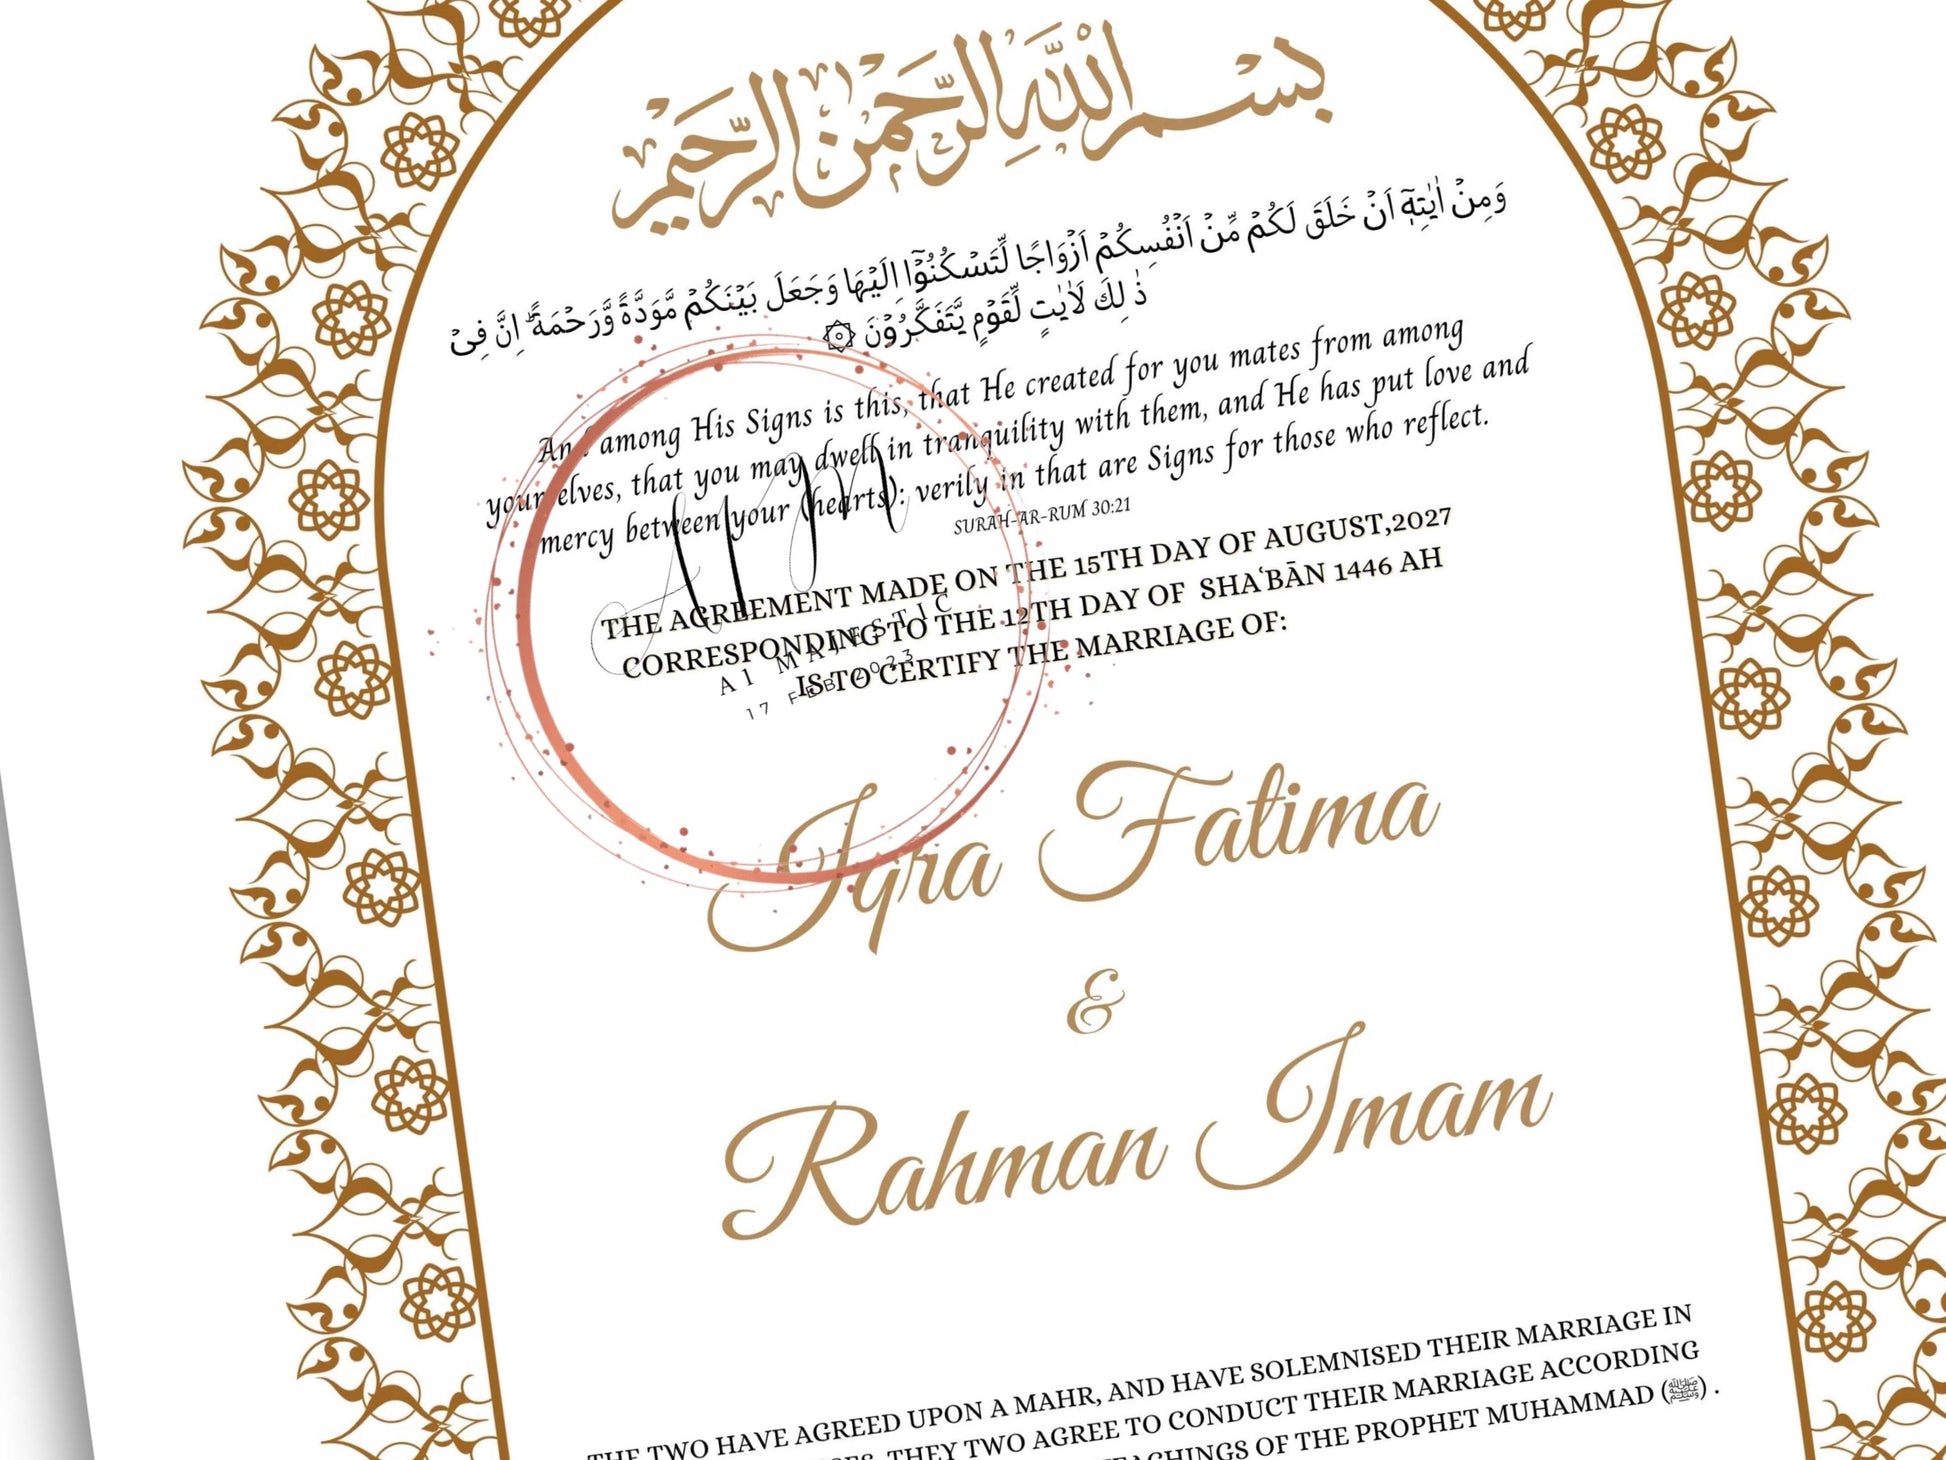 بِسْمِ اللَّهِ الرَّحْمَنِ الرَّحِيمِ
وَمِنۡ اٰيٰتِهٖۤ اَنۡ خَلَقَ لَكُمۡ مِّنۡ اَنۡفُسِكُمۡ اَزۡوَاجًا لِّتَسۡكُنُوۡۤا اِلَيۡهَا وَجَعَلَ بَيۡنَكُمۡ مَّوَدَّةً وَّرَحۡمَةً ؕ اِنَّ فِىۡ
ذٰ لِكَ لَاٰيٰتٍ لِّقَوۡمٍ يَّتَفَكَّرُوۡنَ ۞
And among His Signs is this, that He created for you mates from among
yourselves, that you may dwell in tranquility with them, and He has put love and
mercy between your (hearts): verily in that are Signs for those who reflect.
SURAH-AR-RUM 30:21
THE AGREEMENT MADE ON THE 15TH DAY OF AUGUST,2027
CORRESPONDING TO THE 12TH DAY OF SHAʿBĀN 1446 AH
IS TO CERTIFY THE MARRIAGE OF:
A1 MAJESTIC
17 FEB 2023
Iqra Fatima
&
Rahman Imam
THE TWO HAVE AGREED UPON A MAHR, AND HAVE SOLEMNISED THEIR MARRIAGE IN
THEY TWO AGREE TO CONDUCT THEIR MARRIAGE ACCORDING
TEACHINGS OF THE PROPHET MUHAMMAD (ﷺ) .